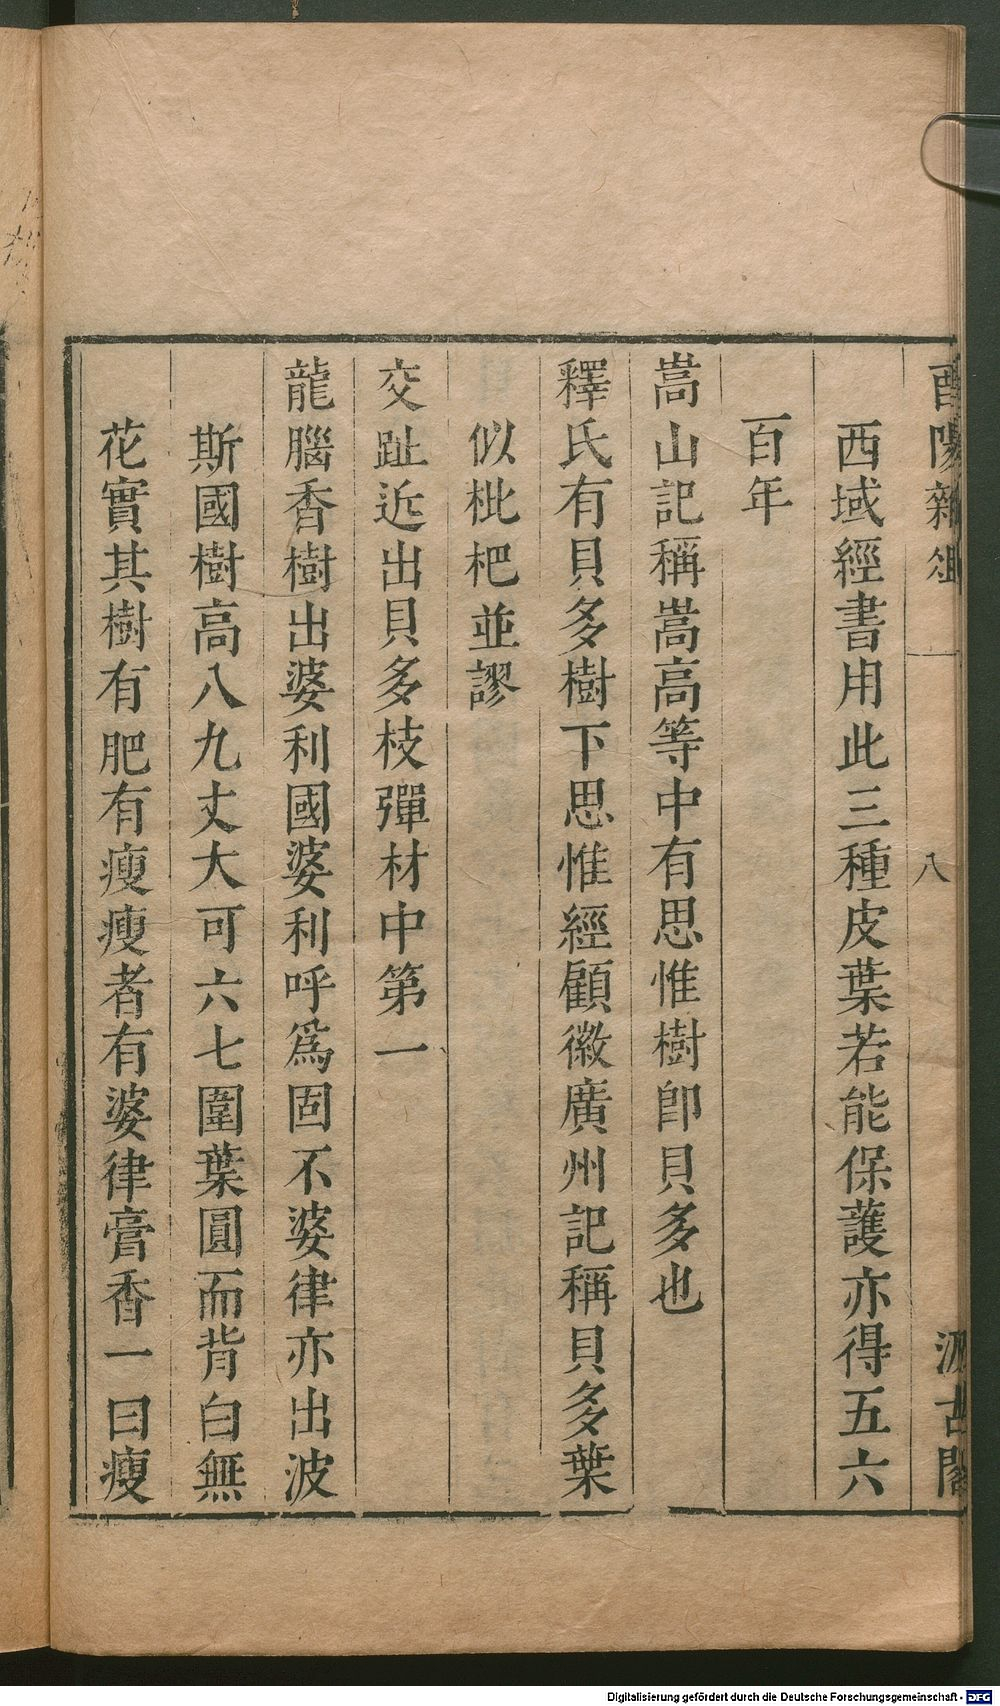 酉陽雜俎
八
汲古閣
西域經書用此三種皮葉若能保護亦得五六
百年
嵩山記稱嵩高等中有思惟樹卽貝多也
釋氏有貝多樹下思惟經顧徽廣州記稱貝多葉
似枇杷並謬
交趾近出貝多枝彈材中第一
龍腦香樹出婆利國婆利呼爲固不婆律亦出波
斯國樹高八九丈大可六七圍葉圓而背白無
花實其樹有肥有瘦瘦者有婆律膏香一曰瘦
Digitalisierung gefördert durch die Deutsche Forschungsgemeinschaft - DFG